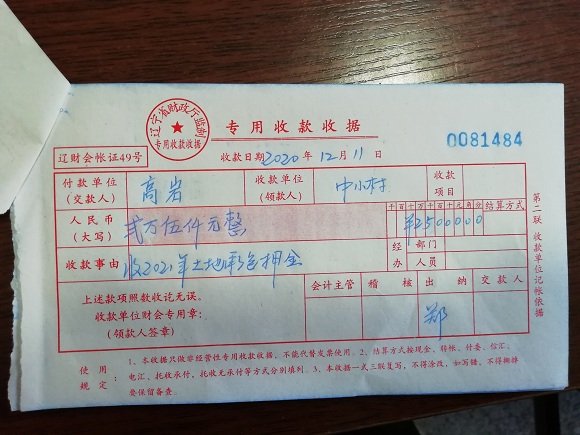 辽宁省财政厅监制
专用收款收据
专用收款收据
0081484
辽财会帐证49号
收款日期2020年12月11日
付款单位
(交款人)
高岩
收款单位
(领款人)
中小村
收款
项目
人民币
(大写)
贰万伍仟元整
千百十万千百十元角分
结算方式
¥2500000
收款事由
收2021年土地承包押金
经办
部门
人员
上述款项照数收讫无误。
收款单位财会专用章:
(领款人签章)
会计主管
稽核
出纳
交款人
郑
第二联 收款单位记帐依据
使用规定:
1、本收据只做非经营性专用收款收据,不能代替发票使用。2、结算方式按现金、转帐、付委、信汇、
电汇、托收承付、托收无承付等方式分别填列。3、本收据一式三联复写,不得涂改,如写错,不得撕掉
要保留备查。